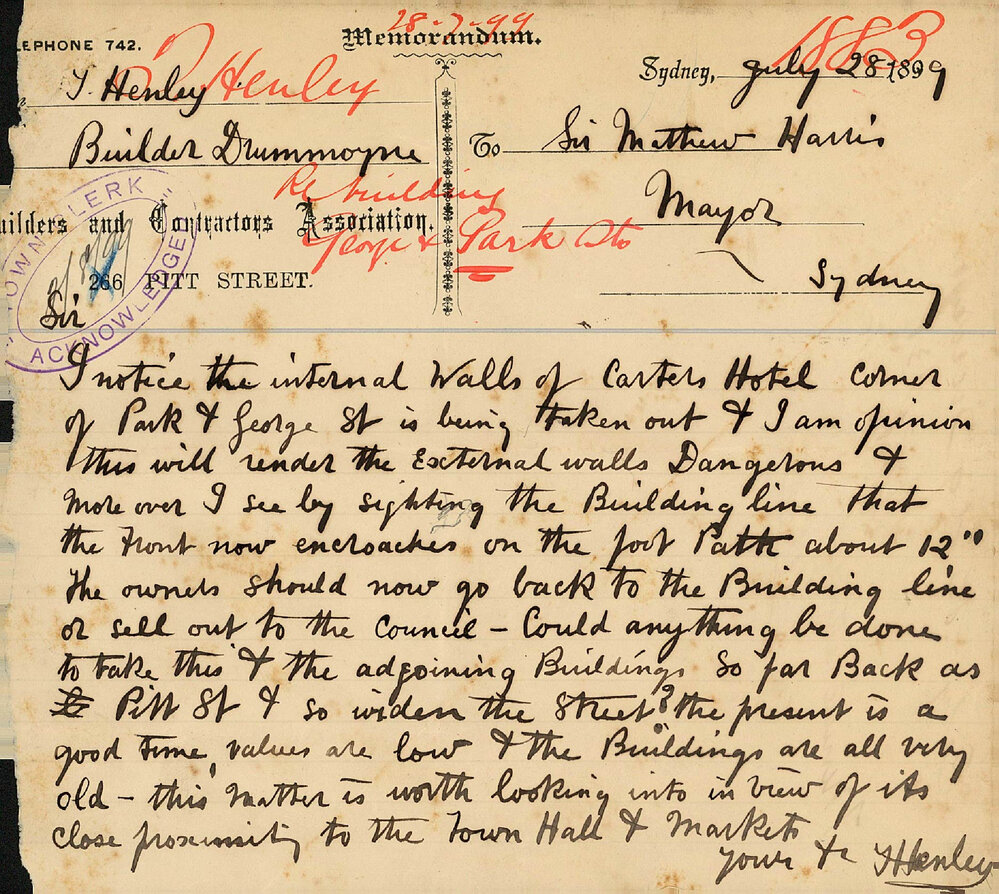 28-7-99
LEPHONE 742.
Memorandum.
1883
T. Henley
Henley
Sydney, July 28 1899
Builder Drummoyne
To Sir Mathew Harris
Re building
Mayor
uilders and Contractors Association.
George & Park Sts
TOWN CLERK
2/8/99
266 PITT STREET.
Sydney
ACKNOWLEDGED
Sir
I notice the internal Walls of Carters Hotel corner
of Park & George St is being taken out & I am opinion
this will render the External walls Dangerous &
more over I see by sighting the Building line that
the front now encroaches on the foot Path about 12"
The owners should now go back to the Building line
or sell out to the Council – Could anything be done
to take this & the adjoining Buildings so far Back as
Pitt St & so widen the Street? the present is a
good time, values are low & the Buildings are all very
old – this matter is worth looking into in view of its
close proximity to the Town Hall & Markets
Yours &c THenley